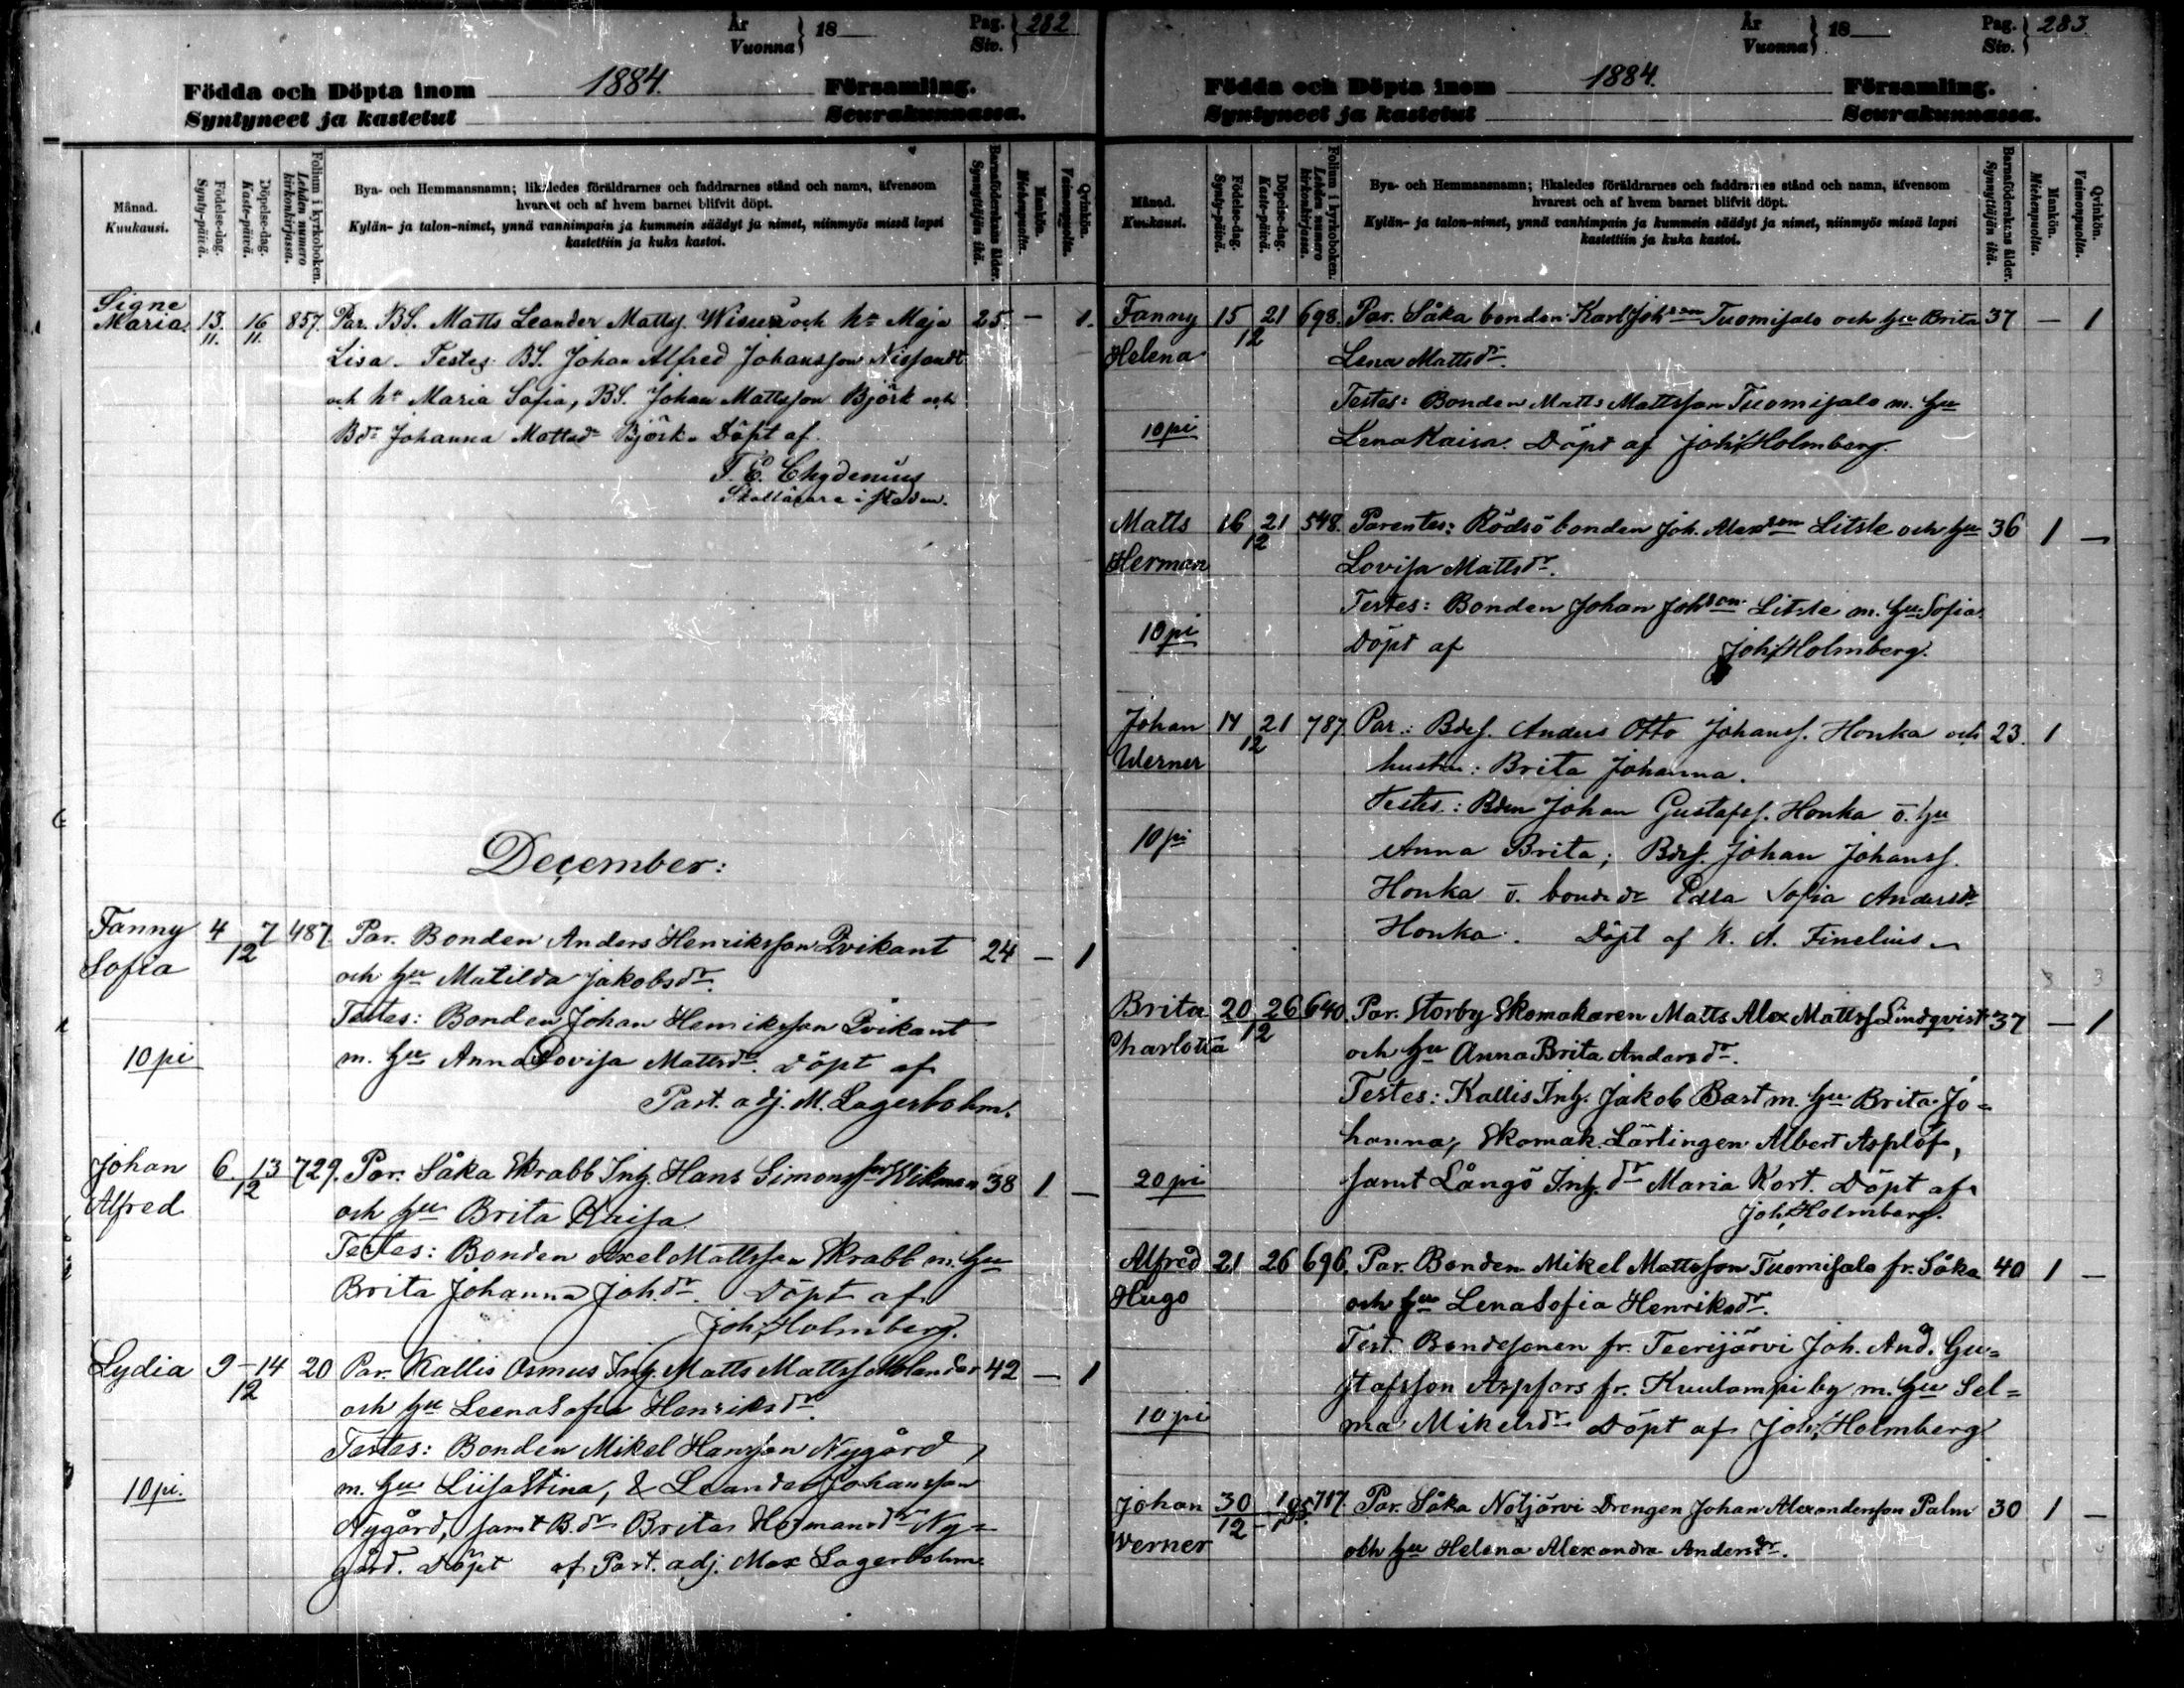 År
Vuonna } 18
Pag.
Siv. } 282
Födda och Döpta inom 1884. Församling.
Syntyneet ja kastetut Seurakunnassa.
Månad.
Kuukausi.
Födelse-dag.
Synty-päivä.
Döpelse-dag.
Kaste-päivä.
Folium i kyrkoboken.
Lehden numero
kirkonkirjassa.
Bya- och Hemmansnamn; likaledes föräldrarnes och faddrarnes stånd och namn, äfvensom
hvarest och af hvem barnet blifvit döpt.
Kylän- ja talon-nimet, ynnä vanhimpain ja kummein säädyt ja nimet, niinmyös missä lapsi
kastettiin ja kuka kastoi.
Barnaföderskans ålder.
Synnyttäjän ikä.
Mankön.
Miehenpuolta.
Qvinkön.
Vaimonpuolta.
Signe
Maria. 13. 16 857. Par. BS. Matts Leander Mattss. och hu Maja 25. — 1.
11. 11.
Lisa. Testes BS. Johan Alfred Johansson
och hu Maria Sofia, BS. Johan Mattsson Björk och
Bdr Johanna Mattsdr Björk. Döpt af
F. E. Chydenius
Skollärare i staden.
December:
Fanny 4 7 487. Par. Bonden Anders Henriksson Qvikant 24 — 1
12
Sofia och hu Matilda Jakobsdr.
Testes: Bonden Johan Henriksson Qvikant
10 pi m. hu Anna Lovisa Mattsdr. Döpt af
Past. adj. M. Lagerbohm.
Johan 6. 13 729. Par. Såka Skrabb Inh. Hans Simonsson Wikman 38 1 —
12
Alfred och hu Brita Kaisa
Testes: Bonden Axel Mattsson Skrabb m. hu
Brita Johanna Joh.dr. Döpt af
Joh. Holmberg.
Lydia 9 — 14 20 Par. Kallis Asmus Inh. Matts Mattss. 42 — 1
12
och hu Leena Sofia Henriksdr.
Testes: Bonden Mikel Hansson Nygård,
10 pi. m. hu Liisa Stina, & Leander Johansson
Nygård, samt B.dr Brita Hermansdr Ny=
gård. Döpt af Past. adj. Max Lagerbohm.
År
Vuonna } 18
Pag.
Siv. } 283.
Födda och Döpta inom 1884. Församling.
Syntyneet ja kastetut Seurakunnassa.
Månad.
Kuukausi.
Födelse-dag.
Synty-päivä.
Döpelse-dag.
Kaste-päivä.
Folium i kyrkoboken.
Lehden numero
kirkonkirjassa.
Bya- och Hemmansnamn; likaledes föräldrarnes och faddrarnes stånd och namn, äfvensom
hvarest och af hvem barnet blifvit döpt.
Kylän- ja talon-nimet, ynnä vanhimpain ja kummein säädyt ja nimet, niinmyös missä lapsi
kastettiin ja kuka kastoi.
Barnaföderskans ålder.
Synnyttäjän ikä.
Mankön.
Miehenpuolta.
Qvinkön.
Vaimonpuolta.
Fanny 15 21 698. Par. Såka bonden Karl Johson Tuomisalo och hu Brita 37 — 1
12
Helena Lena Mattsdr.
Testes: Bonden Matts Mattsson Tuomisalo m. hu
10 pi Lena Kaisa. Döpt af Joh. Holmberg.
Matts 16 21 548. Parentes: Rödsö bonden Joh. Alexson Litsle och hu 36 1 —
12
Herman Lovisa Mattsdr.
Testes: Bonden Johan Johson Litsle m. hu Sofia.
10 pi Döpt af Joh. Holmberg.
Johan 17 21 787. Par.: Bdes. Anders Otto Johanss. Honka och 23. 1
12
Werner hustru: Brita Johanna.
Testes.: Bden Johan Gustafss. Honka o. hu
10 pi Anna Brita; Bdes. Johan Johanss.
Honka o. bondedr Edla Sofia Andersdr
Honka. Döpt af K. A. Finelius
Brita 20 26 640. Par. Storby Skomakaren Matts Alex Mattss Lindqvist 37 — 1
12
Charlotta och hu Anna Brita Andersdr.
Testes: Kallis Inh. Jakob Bast m. hu Brita Jo=
hanna, Skomak. Lärlingen Albert Asplöf,
20 pi samt Långö Inh. dr Maria Kort. Döpt af
Joh. Holmberg.
Alfred 21 26 696. Par. Bonden Mikel Mattsson Tuomisalo fr. Såka 40 1 —
Hugo och hu Lena Sofia Henriksdr.
Test. Bondesonen fr. Teerijärvi Joh. And. Gu=
stafsson Aspfors fr. Huulampi by m. hu Sel=
10 pi ma Mikelsdr Döpt af Joh. Holmberg
Johan 30 1 85. 717. Par. Såka Nötjärvi Drengen Johan Alexandersson Palm 30 1 —
12 — 1
Verner och hu Helena Alexandra Andersdr.